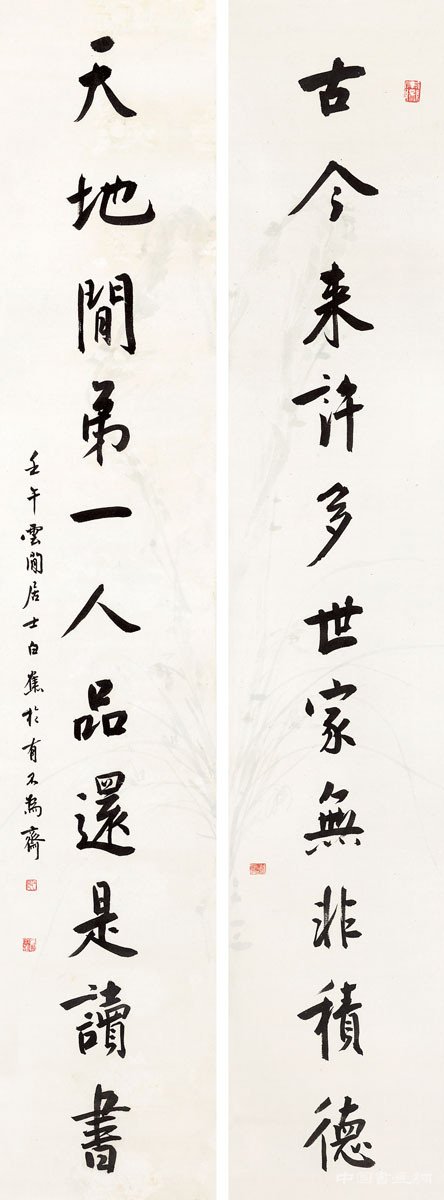 古今来許多世家無非積德
天地間弟一人品還是讀書
壬午雲間居士白蕉於有不為齋
中国書画网